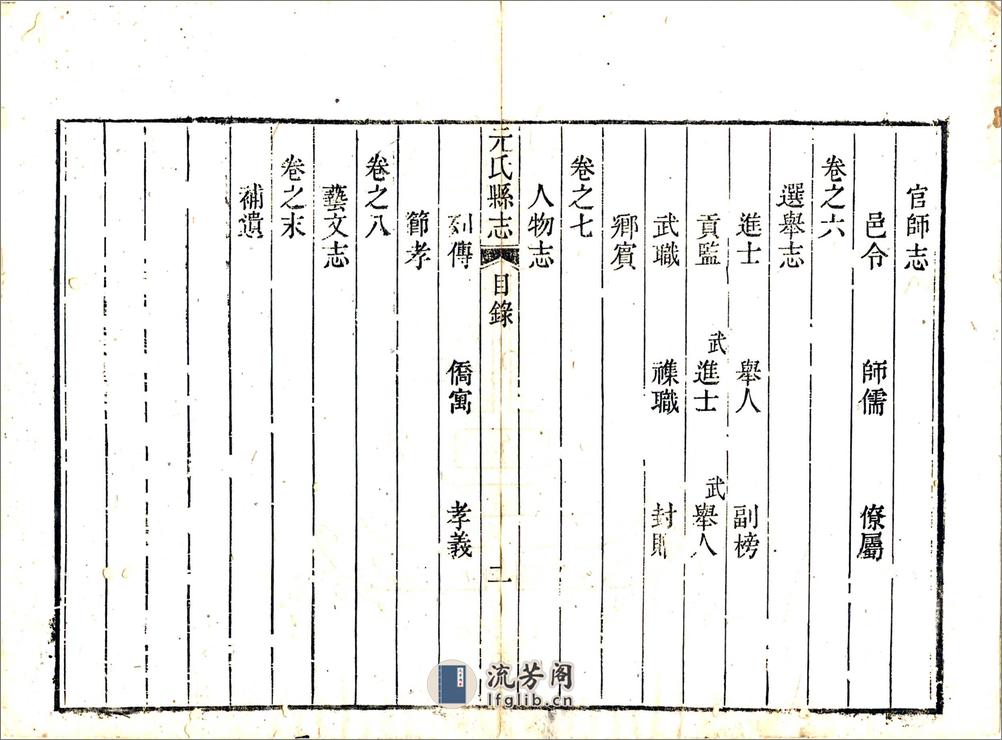 官師志
邑令 師儒 僚屬
卷之六
選舉志
進士 舉人 副榜
貢監 武進士 武舉人
武職 襍職 封
鄉賓
卷之七
人物志
元氏縣志 目錄 二
列傳 僑寓 孝義
節孝
卷之八
藝文志
卷之末
補遺
流芳阁
lfglib.cn